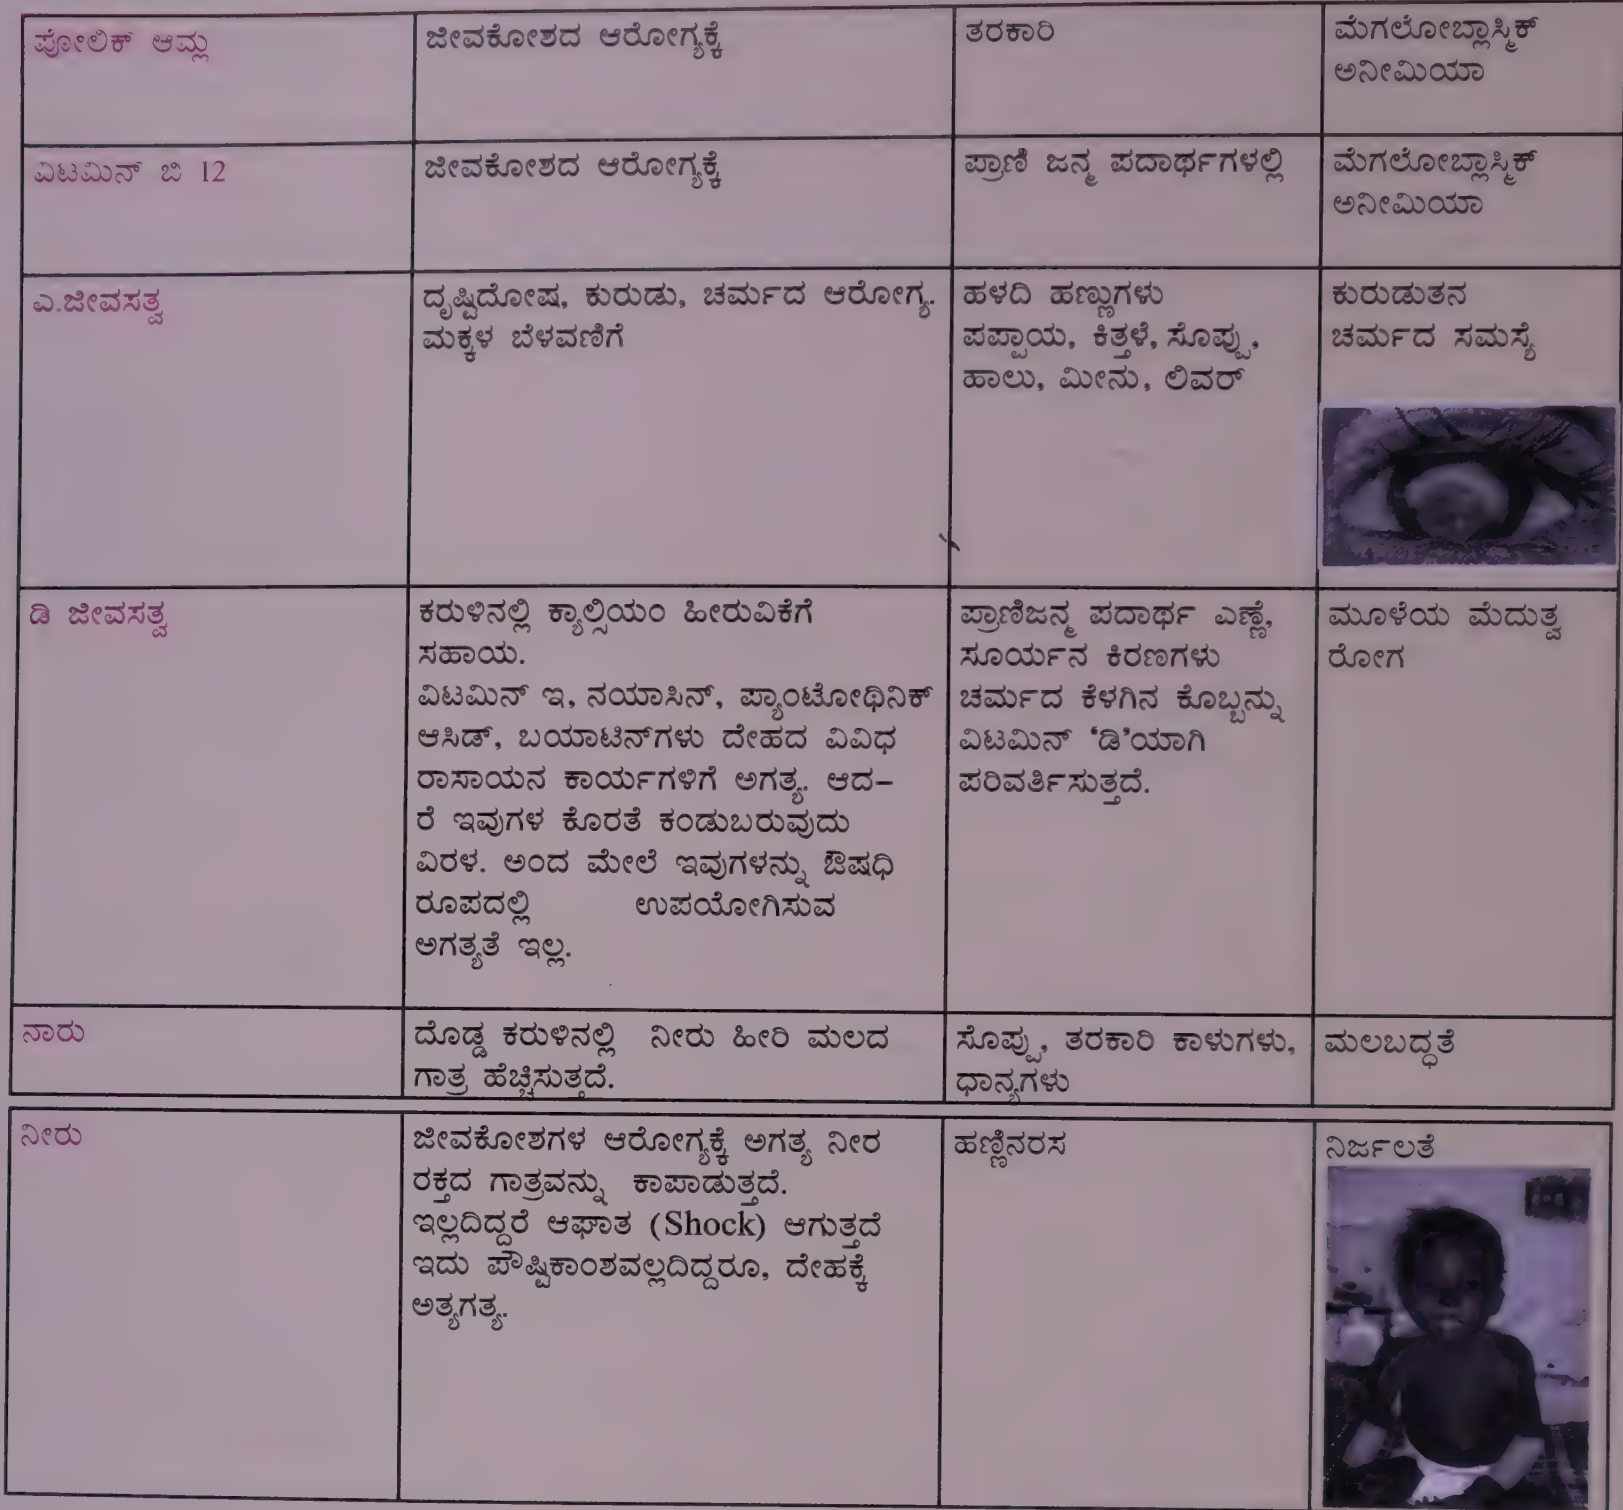 ಪೋಲಿಕ್ ಆಮ್ಲ
ಜೀವಕೋಶದ ಆರೋಗ್ಯಕ್ಕೆ
ತರಕಾರಿ
ಮೆಗಲೋಬ್ಲಾಸ್ಮಿಕ್
ಅನೀಮಿಯಾ
ವಿಟಮಿನ್ ಬಿ 12
ಜೀವಕೋಶದ ಆರೋಗ್ಯಕ್ಕೆ
ಪ್ರಾಣಿ ಜನ್ಮ ಪದಾರ್ಥಗಳಲ್ಲಿ
ಮೆಗಲೋಬ್ಲಾಸ್ಮಿಕ್
ಅನೀಮಿಯಾ
ಎ.ಜೀವಸತ್ವ
ದೃಷ್ಟಿದೋಷ, ಕುರುಡು, ಚರ್ಮದ ಆರೋಗ್ಯ.
ಮಕ್ಕಳ ಬೆಳವಣಿಗೆ
ಹಳದಿ ಹಣ್ಣುಗಳು
ಪಪ್ಪಾಯ, ಕಿತ್ತಳೆ, ಸೊಪ್ಪು,
ಹಾಲು, ಮೀನು, ಲಿವರ್
ಕುರುಡುತನ
ಚರ್ಮದ ಸಮಸ್ಯೆ
ಡಿ ಜೀವಸತ್ವ
ಕರುಳಿನಲ್ಲಿ ಕ್ಯಾಲ್ಸಿಯಂ ಹೀರುವಿಕೆಗೆ
ಸಹಾಯ.
ವಿಟಮಿನ್ ಇ, ನಯಾಸಿನ್, ಪ್ಯಾಂಟೋಥಿನಿಕ್
ಆಸಿಡ್, ಬಯಾಟಿನ್‌ಗಳು ದೇಹದ ವಿವಿಧ
ರಾಸಾಯನ ಕಾರ್ಯಗಳಿಗೆ ಅಗತ್ಯ. ಆದ–
ರೆ ಇವುಗಳ ಕೊರತೆ ಕಂಡುಬರುವುದು
ವಿರಳ. ಅಂದ ಮೇಲೆ ಇವುಗಳನ್ನು ಔಷಧಿ
ರೂಪದಲ್ಲಿ ಉಪಯೋಗಿಸುವ
ಅಗತ್ಯತೆ ಇಲ್ಲ.
ಪ್ರಾಣಿಜನ್ಮ ಪದಾರ್ಥ ಎಣ್ಣೆ,
ಸೂರ್ಯನ ಕಿರಣಗಳು
ಚರ್ಮದ ಕೆಳಗಿನ ಕೊಬ್ಬನ್ನು
ವಿಟಮಿನ್ ‘ಡಿ’ಯಾಗಿ
ಪರಿವರ್ತಿಸುತ್ತದೆ.
ಮೂಳೆಯ ಮೆದುತ್ವ
ರೋಗ
ನಾರು
ದೊಡ್ಡ ಕರುಳಿನಲ್ಲಿ ನೀರು ಹೀರಿ ಮಲದ
ಗಾತ್ರ ಹೆಚ್ಚಿಸುತ್ತದೆ.
ಸೊಪ್ಪು, ತರಕಾರಿ ಕಾಳುಗಳು,
ಧಾನ್ಯಗಳು
ಮಲಬದ್ಧತೆ
ನೀರು
ಜೀವಕೋಶಗಳ ಆರೋಗ್ಯಕ್ಕೆ ಅಗತ್ಯ ನೀರ
ರಕ್ತದ ಗಾತ್ರವನ್ನು ಕಾಪಾಡುತ್ತದೆ.
ಇಲ್ಲದಿದ್ದರೆ ಆಘಾತ (Shock) ಆಗುತ್ತದೆ
ಇದು ಪೌಷ್ಟಿಕಾಂಶವಲ್ಲದಿದ್ದರೂ, ದೇಹಕ್ಕೆ
ಅತ್ಯಗತ್ಯ.
ಹಣ್ಣಿನರಸ
ನಿರ್ಜಲತೆ